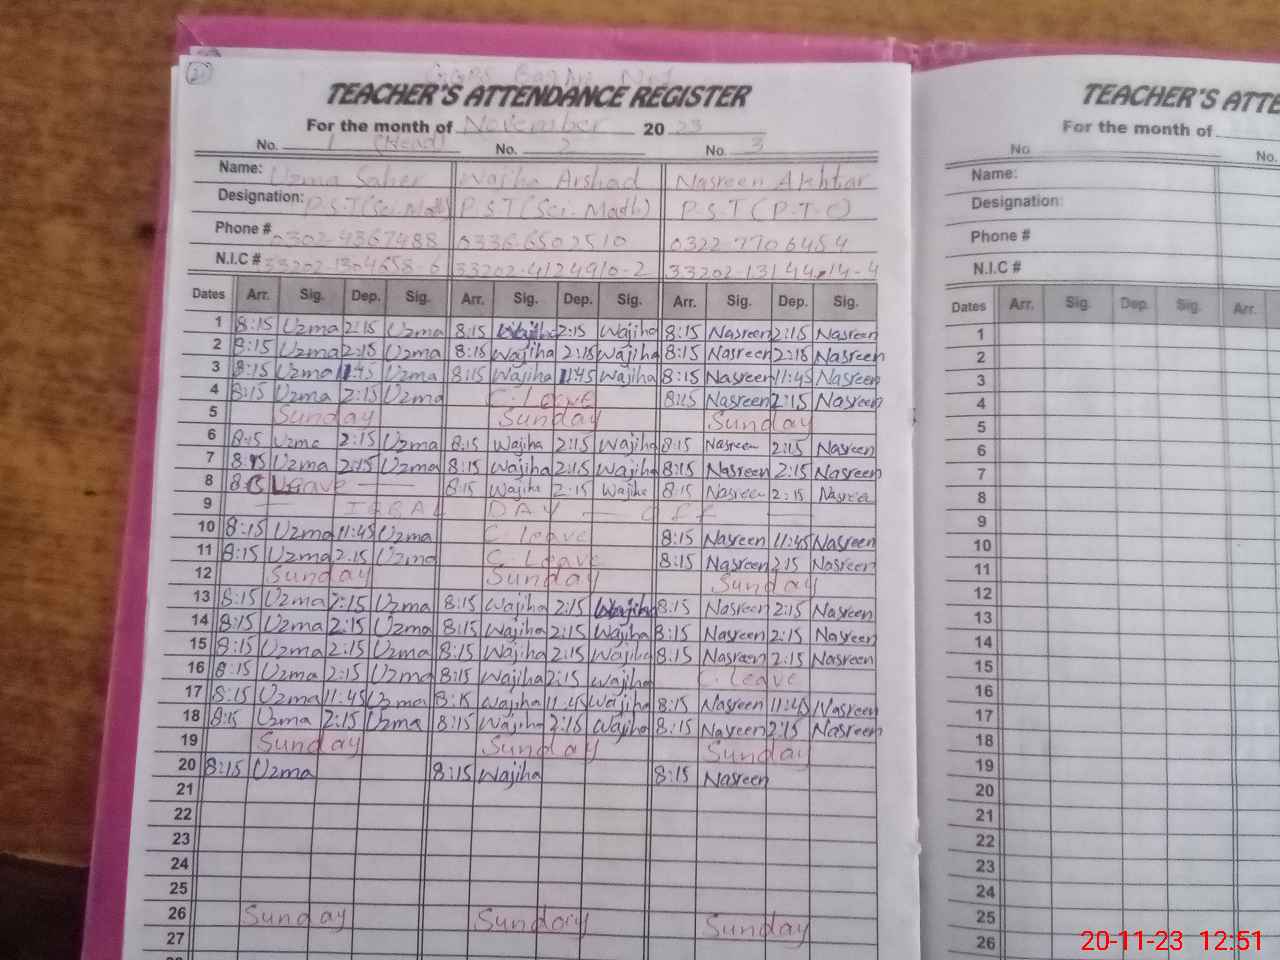 21
GGPS Bagh No.1
TEACHER'S ATTENDANCE REGISTER
For the month of November 2023
No. 1 (Head) No. 2 No. 3
Name: Uzma Saher Wajiha Arshad Nasreen Akhtar
Designation: P.S.T (Sci. Math) P.S.T (Sci. Math) P.S.T (P.T.C)
Phone # 0302-4367488 0336 6502510 0322 7706454
N.I.C # 33202-1304658-6 33202-4124910-2 33202-1314414-4
Dates Arr. Sig. Dep. Sig. Arr. Sig. Dep. Sig. Arr. Sig. Dep. Sig.
1 8:15 Uzma 2:15 Uzma 8:15 Wajiha 2:15 Wajiha 8:15 Nasreen 2:15 Nasreen
2 8:15 Uzma 2:15 Uzma 8:15 Wajiha 2:15 Wajiha 8:15 Nasreen 2:15 Nasreen
3 8:15 Uzma 11:45 Uzma 8:15 Wajiha 11:45 Wajiha 8:15 Nasreen 11:45 Nasreen
4 8:15 Uzma 2:15 Uzma C. Leave 8:15 Nasreen 2:15 Nasreen
5 Sunday Sunday Sunday
6 8:15 Uzma 2:15 Uzma 8:15 Wajiha 2:15 Wajiha 8:15 Nasreen 2:15 Nasreen
7 8:15 Uzma 2:15 Uzma 8:15 Wajiha 2:15 Wajiha 8:15 Nasreen 2:15 Nasreen
8 C Leave 8:15 Wajiha 2:15 Wajiha 8:15 Nasreen 2:15 Nasreen
9 — IQBAL DAY — OFF —
10 8:15 Uzma 11:45 Uzma C. leave 8:15 Nasreen 11:45 Nasreen
11 8:15 Uzma 2:15 Uzma C. Leave 8:15 Nasreen 2:15 Nasreen
12 Sunday Sunday Sunday
13 8:15 Uzma 2:15 Uzma 8:15 Wajiha 2:15 Wajiha 8:15 Nasreen 2:15 Nasreen
14 8:15 Uzma 2:15 Uzma 8:15 Wajiha 2:15 Wajiha 8:15 Nasreen 2:15 Nasreen
15 8:15 Uzma 2:15 Uzma 8:15 Wajiha 2:15 Wajiha 8:15 Nasreen 2:15 Nasreen
16 8:15 Uzma 2:15 Uzma 8:15 Wajiha 2:15 Wajiha C. leave
17 8:15 Uzma 11:45 Uzma 8:15 Wajiha 11:45 Wajiha 8:15 Nasreen 11:45 Nasreen
18 8:15 Uzma 2:15 Uzma 8:15 Wajiha 2:15 Wajiha 8:15 Nasreen 2:15 Nasreen
19 Sunday Sunday Sunday
20 8:15 Uzma 8:15 Wajiha 8:15 Nasreen
21
22
23
24
25
26 Sunday Sunday Sunday
27
TEACHER'S ATTE
For the month of
No. No.
Name:
Designation:
Phone #
N.I.C #
Dates Arr. Sig. Dep. Sig. Arr.
1
2
3
4
5
6
7
8
9
10
11
12
13
14
15
16
17
18
19
20
21
22
23
24
25
26
20-11-23 12:51